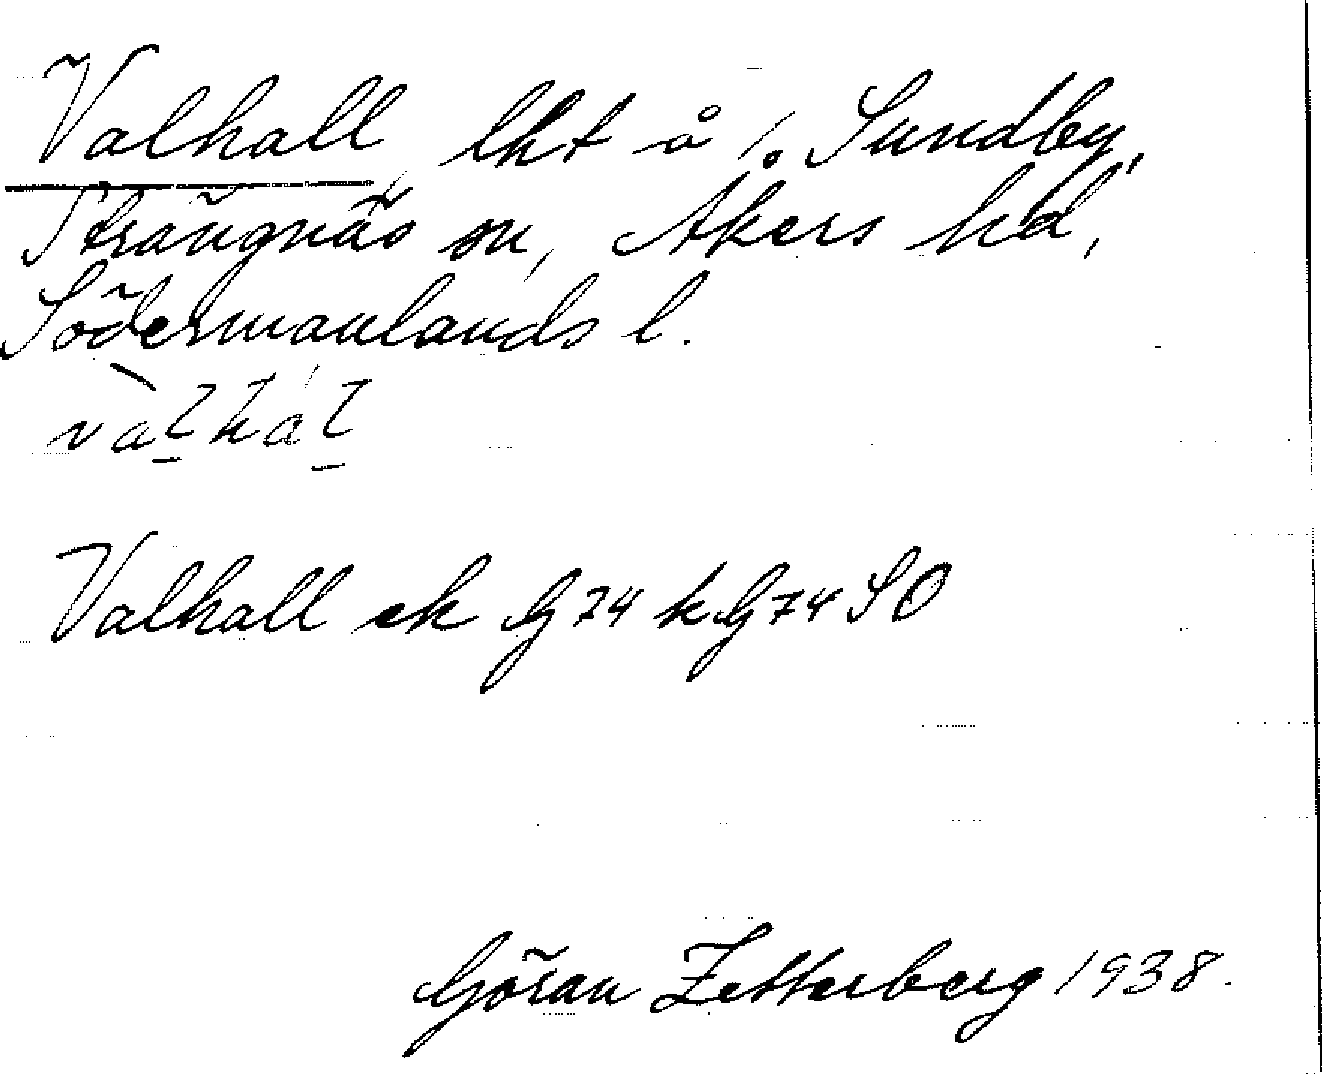 Valhall, lht å 1. Sundby,
Strängnäs sn, Åkers hd,
Södermanlands l.
Valhall ek G 74 k G 74 SO
Göran Zetterberg 1938.